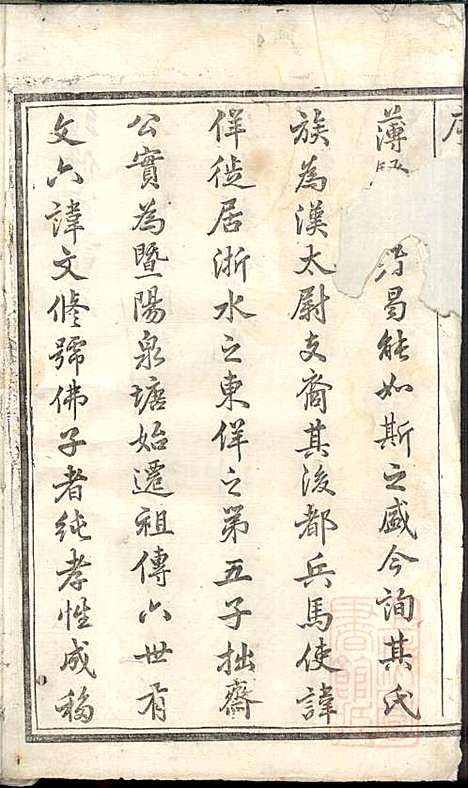 序
薄
曷能如斯之盛今詢其氏
族為漢太尉支裔其後都兵馬使諱
佯徙居浙水之東佯之第五子拙齋
公實為暨陽泉塘始遷祖傳六世有
文六諱文脩號佛子者純孝性成稱